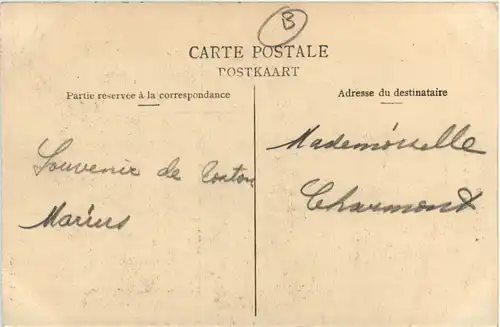 B
CARTE POSTALE
POSTKAART
Partie réservée à la correspondance
Adresse du destinataire
Souvenir de tonton
Marius
Mademoiselle
Charmont